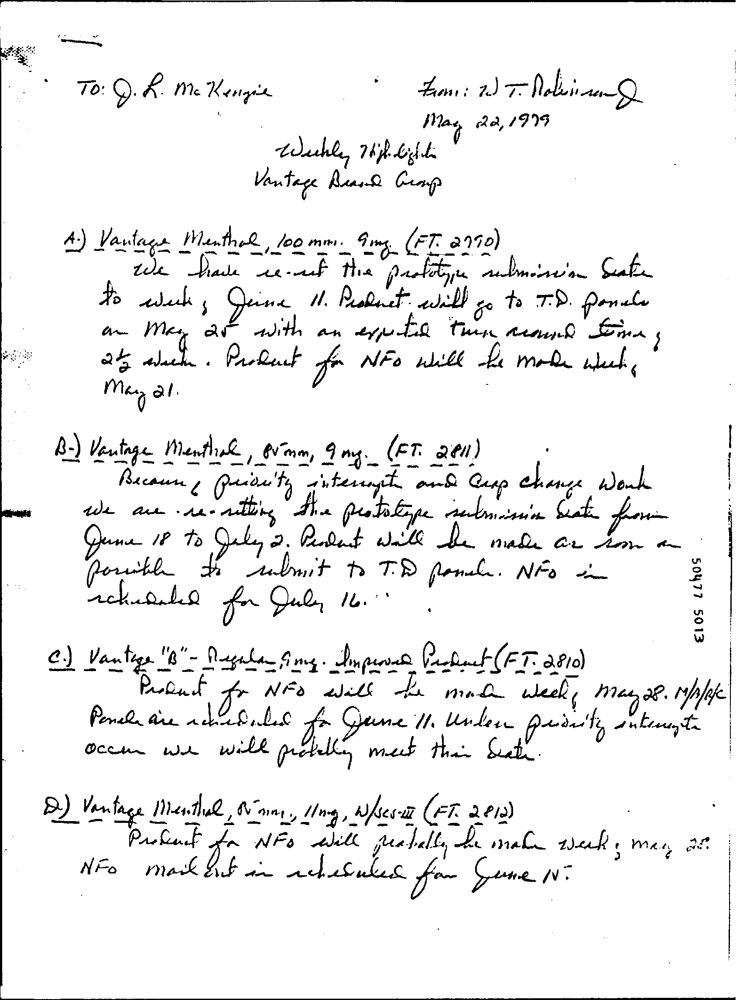 To: J. R. McKenzie
From: W T. Robinson J
May 22, 1979
Weekly Highlights
Vantage Brand Group
A.) Vantage Menthol, 100 mm. 9 mg. (FT. 2790)
We have re-set the prototype submission date
to week of June 11. Product will go to T.D. panels
on May 25 with an expected turn around time of
2 1/2 weeks. Product for NFO will be made week of
May 21.
B.) Vantage Menthol, 85 mm, 9 mg. (FT. 2811)
Because of priority interrupts and crop change work
we are re-setting the prototype submission date from
June 18 to July 2. Product will be made as soon as
possible to submit to T.D panels. NFO is
scheduled for July 16.
C.) Vantage "B" - Regular, 9 mg. Improved Product (FT. 2810)
Product for NFO will be made week of May 28.
Panels are scheduled for June 11. Unless priority interrupts
occur we will probably meet this date.
D.) Vantage Menthol, 85 mm, 11 mg, W/SCS-III (FT. 2812)
Product for NFO will probably be made week of May 28.
NFO mail out is scheduled for June 15.
50477 5013